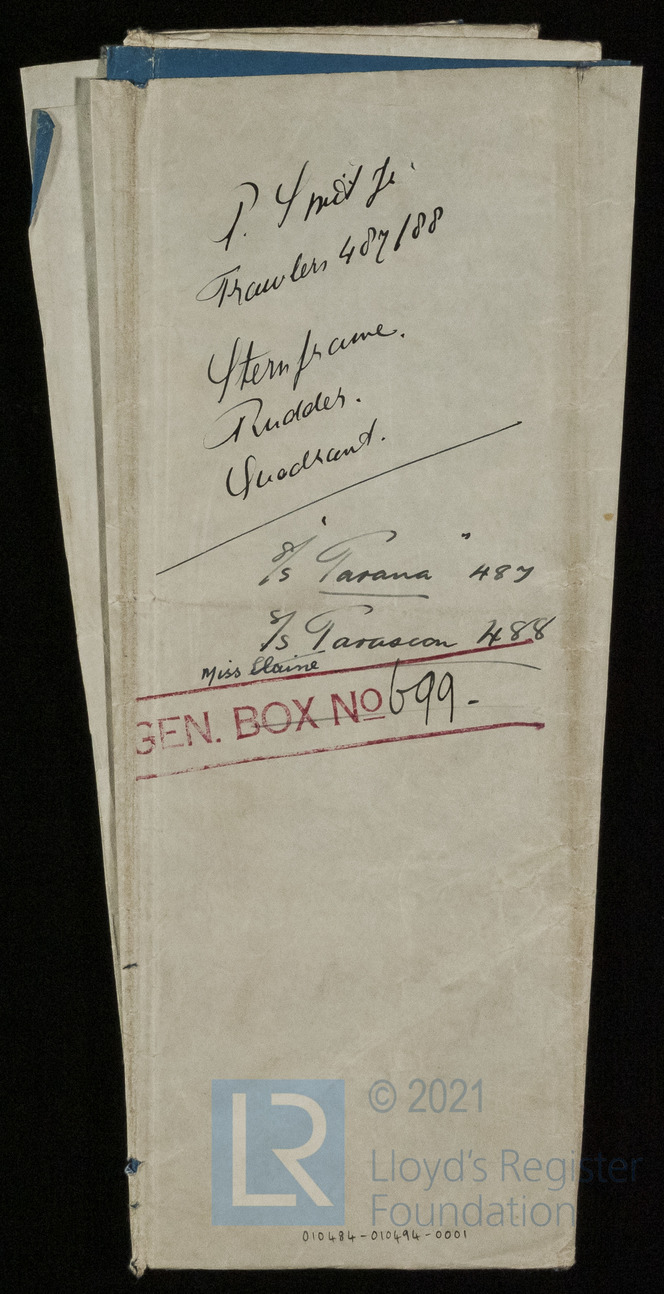 P. Smit Jr.
Trawlers 487/88
Sternframe.
Rudder.
Quadrant.
S/s "Tarana" 487
S/s Tarascon 488
Miss Elaine
GEN. BOX No 699-
LR
© 2021
Lloyd's Register
Foundation
010484-010494-0001